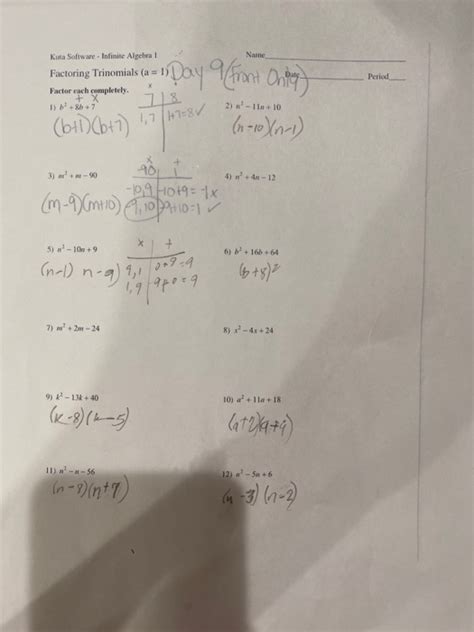 Kuta Software - Infinite Algebra 1 Name
Factoring Trinomials (a = 1) Day 9 (Front Only) Date Period
Factor each completely.
1) b² + 8b + 7
(b+1)(b+7)
+ x
x
7 | 8
1,7 | 1+7=8✓
2) n² − 11n + 10
(n-10)(n-1)
3) m² + m − 90
(m-9)(m+10)
x
-90 | 1
-10,9 -10+9=-1x
-9,10 -9+10=1 ✓
4) n² + 4n − 12
5) n² − 10n + 9
(n-1) n-9)
x | +
9,1
1,9
6) b² + 16b + 64
(b+8)²
7) m² + 2m − 24
8) x² − 4x + 24
9) k² − 13k + 40
(k-8)(k-5)
10) a² + 11a + 18
(a+2)(a+9)
11) n² − n − 56
12) n² − 5n + 6
(n-3)(n-2)